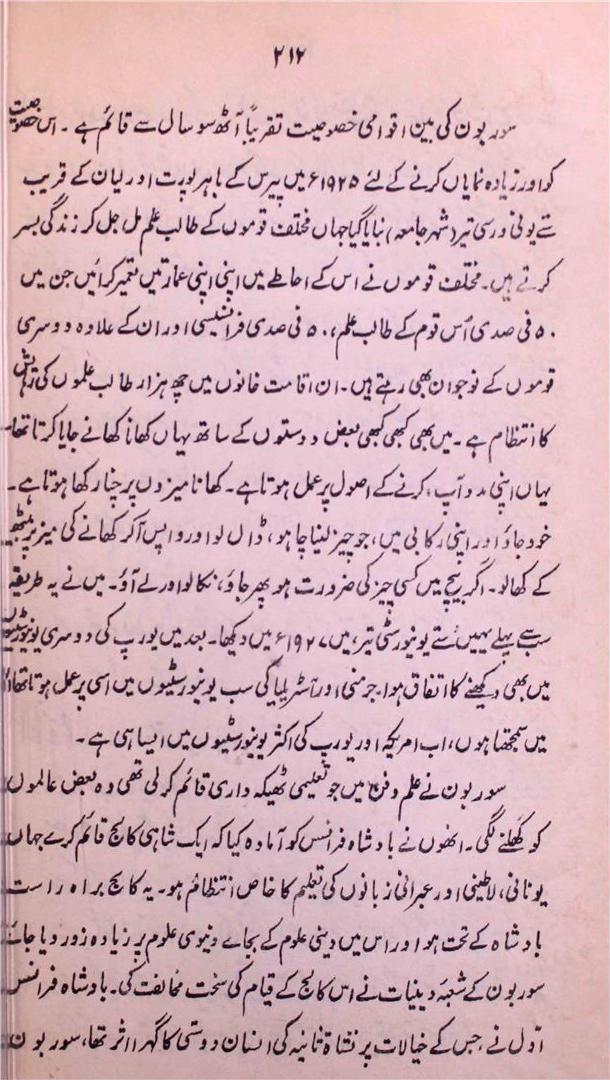 ۲۱۲
سوربون کی بین اقوامی خصوصیت تقریباً آٹھ سو سال سے قائم ہے ۔ اس خصوصیت
کو اور زیادہ نمایاں کرنے کے لئے ۱۹۲۵ء میں پیرس کے باہر پورت اورلیان کے قریب
ستے یونی ورسی تیر (شہر جامعہ) بنایا گیا جہاں مختلف قوموں کے طالب علم مل جل کر زندگی بسر
کرتے ہیں۔ مختلف قوموں نے اس کے احاطے میں اپنی اپنی عمارتیں تعمیر کرائیں جن میں
۵۰ فی صدی اُس قوم کے طالب علم، ۵۰ فی صدی فرانسیسی اور ان کے علاوہ دوسری
قوموں کے نوجوان بھی رہتے ہیں۔ ان اقامت خانوں میں چھ ہزار طالب علموں کی رہائش
کا انتظام ہے ۔ میں بھی کبھی کبھی بعض دوستوں کے ساتھ یہاں کھانا کھانے جایا کرتا تھا۔
یہاں اپنی مدد آپ، کرنے کے اصول پر عمل ہوتا ہے۔ کھانا میزوں پر چنا رکھا ہوتا ہے ۔
خود جاؤ اور اپنی رکابی میں، جو چیز لینا چاہو، ڈال لو اور واپس آکر کھانے کی میز پر بیٹھ
کے کھالو۔ اگر بیچ میں کسی چیز کی ضرورت ہو پھر جاؤ، نکالو اور لے آؤ ۔ میں نے یہ طریقہ
سب سے پہلے یہیں ستے یونیورسٹی تیر، میں ۱۹۲۷ء میں دیکھا۔ بعد میں یورپ کی دوسری یونیورسٹیوں
میں بھی دیکھنے کا اتفاق ہوا۔ جرمنی اور آسٹریلیا کی سب یونیورسٹیوں میں اسی پر عمل ہوتا تھا۔
میں سمجھتا ہوں، اب امریکہ اور یورپ کی اکثر یونیورسٹیوں میں ایسا ہی ہے ۔
سوربون نے علم و فن میں جو تعلیمی ٹھیکہ داری قائم کر لی تھی وہ بعض عالموں
کو کھلنے لگی ۔ انھوں نے بادشاہ فرانسس کو آمادہ کیا کہ ایک شاہی کالج قائم کرے جہاں
یونانی، لاطینی اور عبرانی زبانوں کی تعلیم کا خاص انتظام ہو۔ یہ کالج براہ راست
بادشاہ کے تحت ہو اور اس میں دینی علوم کے بجائے دنیوی علوم پر زیادہ زور دیا جائے
سوربون کے شعبۂ دینیات نے اس کالج کے قیام کی سخت مخالفت کی۔ بادشاہ فرانسس
اوّل نے، جس کے خیالات پر نشاۃ ثانیہ کی انسان دوستی کا گہرا اثر تھا، سوربون